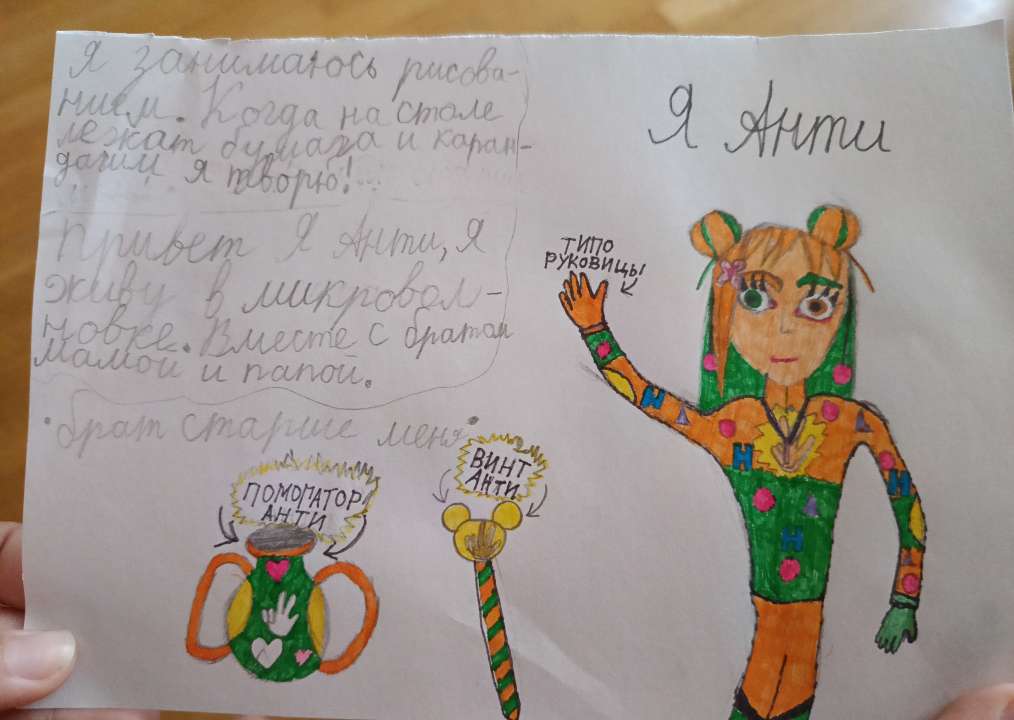 Я занимаюсь рисова-
нием. Когда на столе
лежат бумага и каран-
даши я творю!
Привет Я Анти, я
живу в микровол-
новке. Вместе с братом
мамой и папой.
брат старше меня
Я Анти
ТИПО
РУКОВИЦЫ
ПОМОГАТОР
АНТИ
ВИНТ
АНТИ